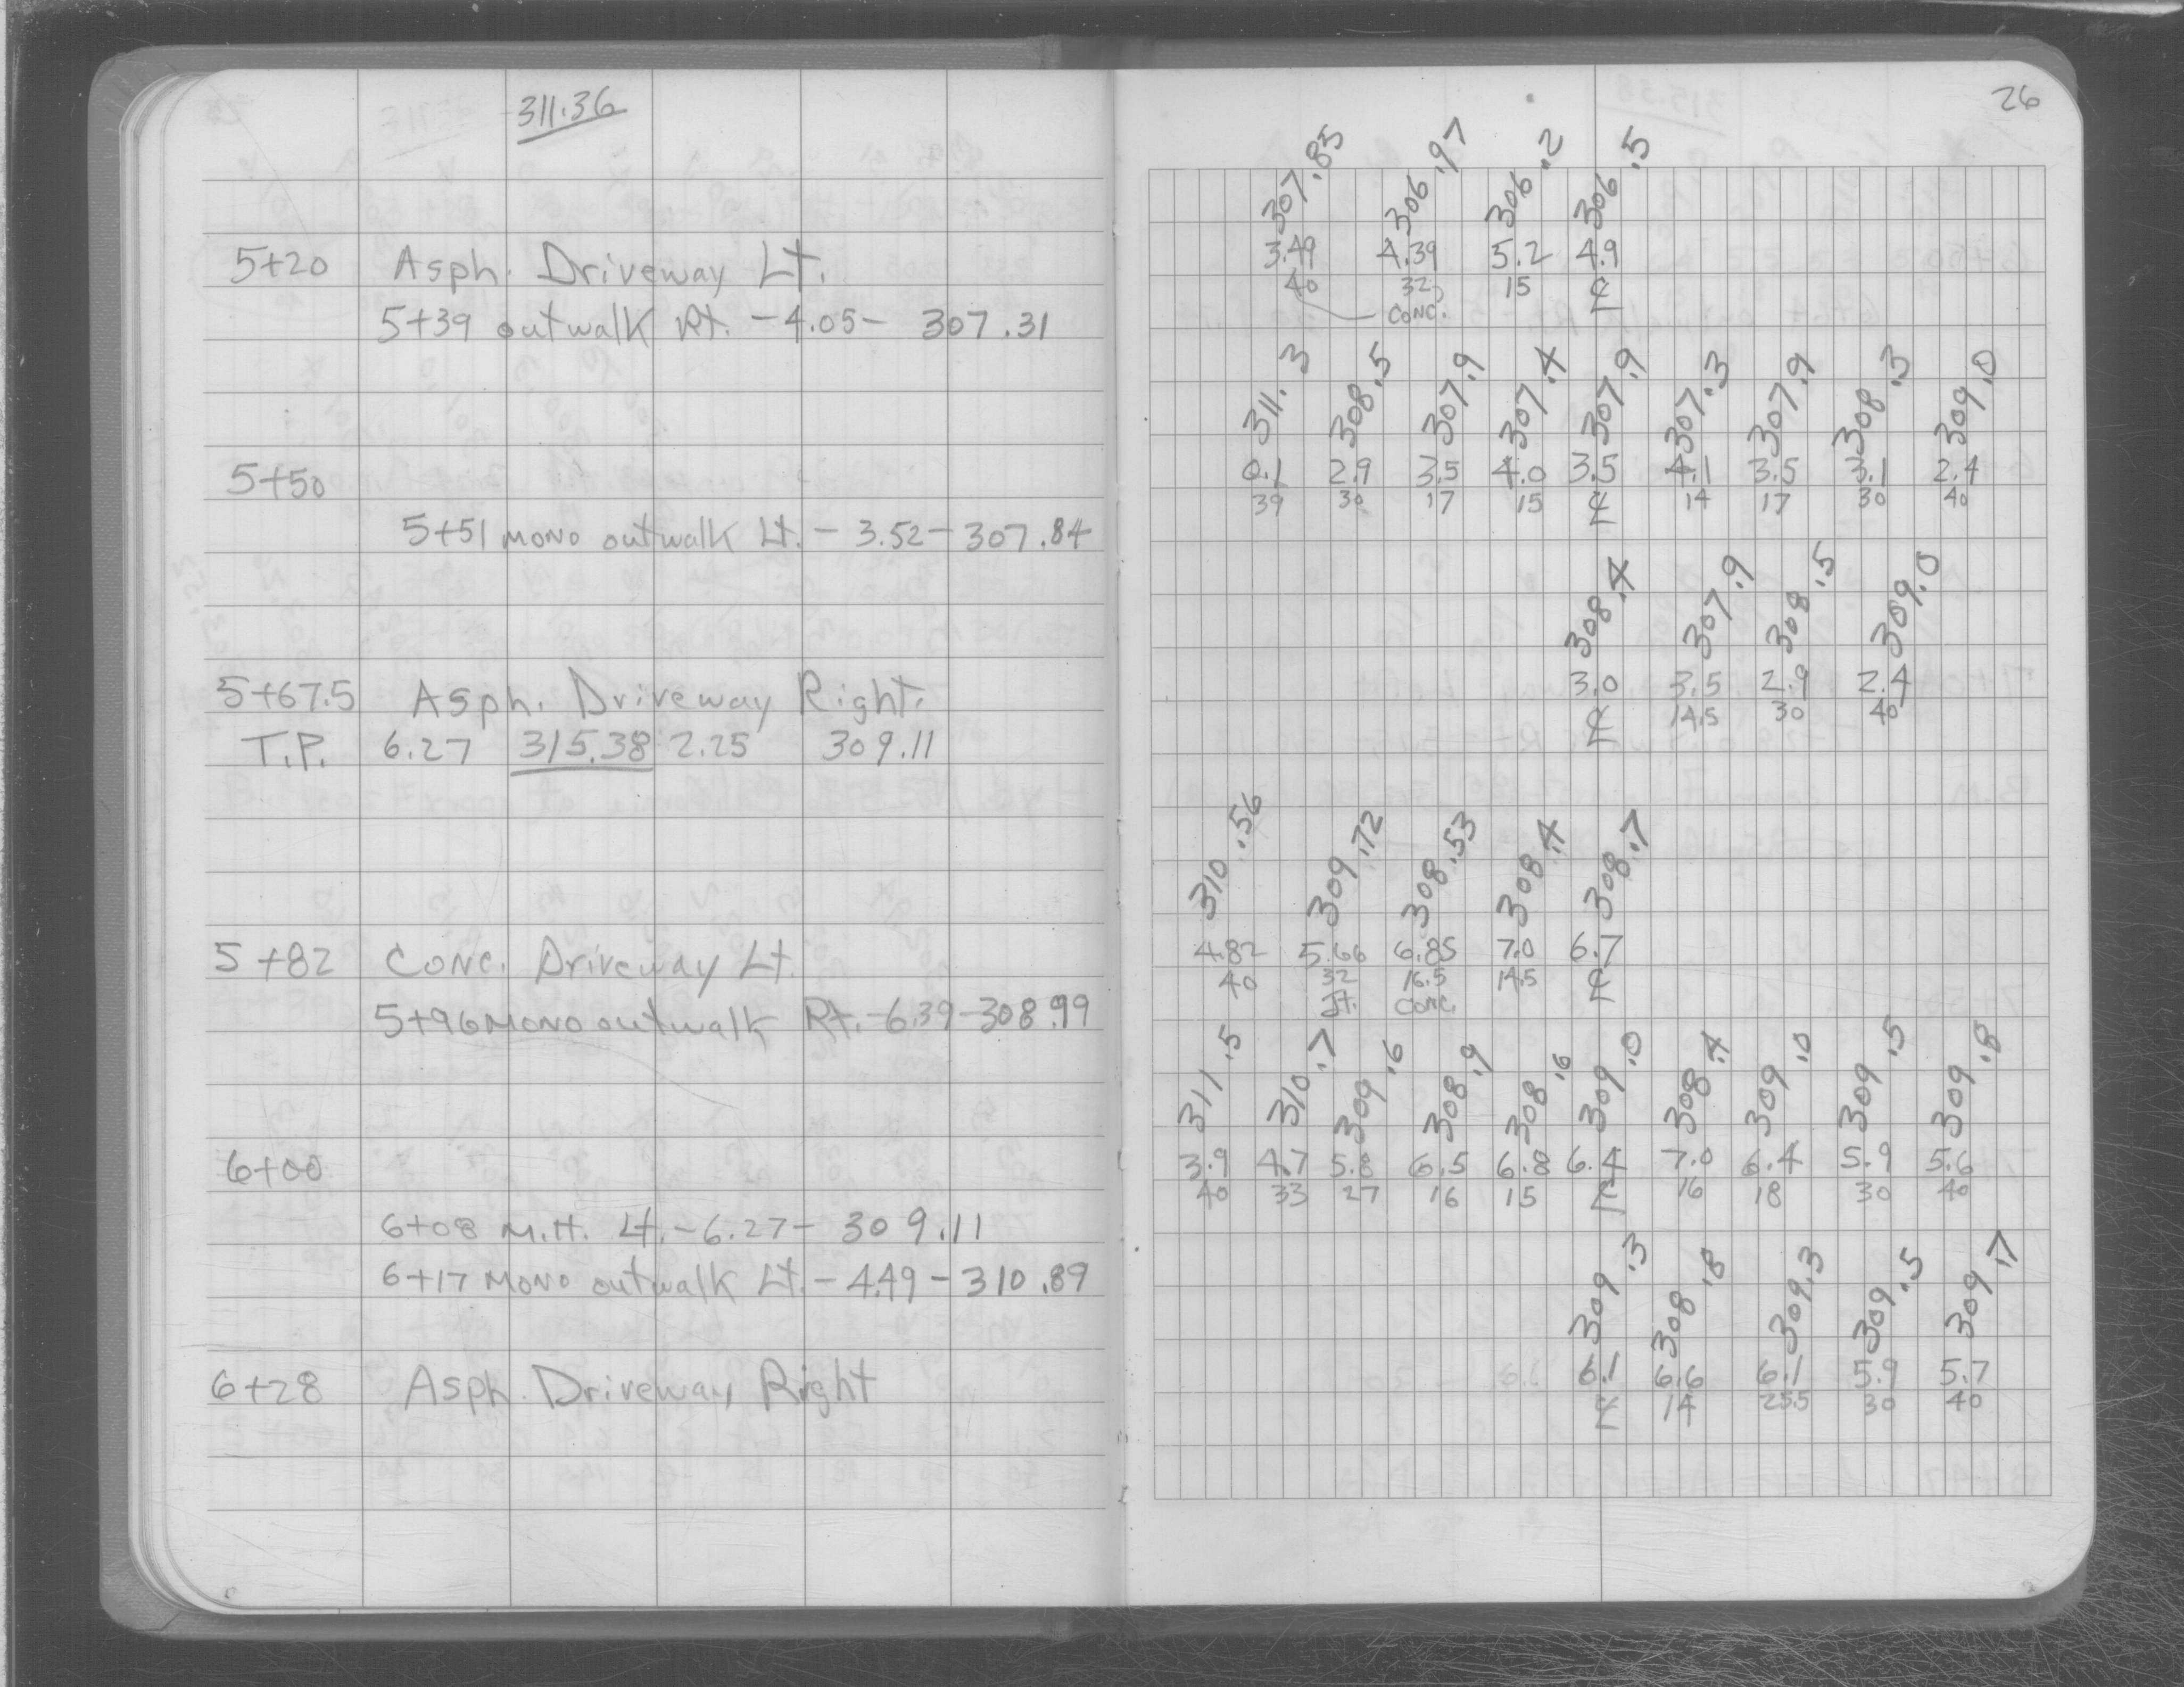 311.36
5+20 Asph. Driveway Lt.
5+39 outwalk Rt. - 4.05 - 307.31
5+50
5+51 MONO outwalk Lt. - 3.52 - 307.84
5+67.5 Asph. Driveway Right.
T.P. 6.27 315.38 2.25 309.11
5+82 Conc. Driveway Lt.
5+96 MONO outwalk Rt. - 6.39 - 308.99
6+00
6+08 M.H. Lt. - 6.27 - 309.11
6+17 MONO outwalk Lt. - 4.49 - 310.89
6+28 Asph. Driveway Right
26
307.85 306.97 306.2 306.5
3.49 4.39 5.2 4.9
40 32 15 ℄
Conc.
311.3 308.5 307.9 307.4 307.9 307.3 307.9 308.3 309.0
0.1 2.9 3.5 4.0 3.5 4.1 3.5 3.1 2.4
39 30 17 15 ℄ 14 17 30 40
308.4 307.9 308.5 309.0
3.0 3.5 2.9 2.4
℄ 14.5 30 40
310.56 309.72 308.53 308.4 308.7
4.82 5.66 6.85 7.0 6.7
40 32 16.5 14.5 ℄
Jt. Conc.
311.5 310.7 309.6 308.9 308.6 309.0 308.4 309.0 309.5 309.8
3.9 4.7 5.8 6.5 6.8 6.4 7.0 6.4 5.9 5.6
40 33 27 16 15 ℄ 16 18 30 40
309.3 308.8 309.3 309.5 309.7
6.1 6.6 6.1 5.9 5.7
℄ 14 25.5 30 40